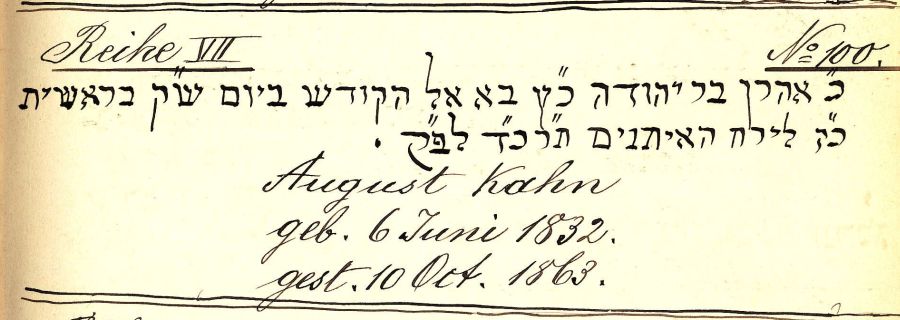 Reihe VII
No 100.
כ״ אהרן בר יהודה כ״ץ בא אל הקודש ביום ש״ק בראשית
כ״ז לירח האיתנים תרכ״ד לפ״ק .
August Kahn
geb. 6 Juni 1832.
gest. 10 Oct. 1863.